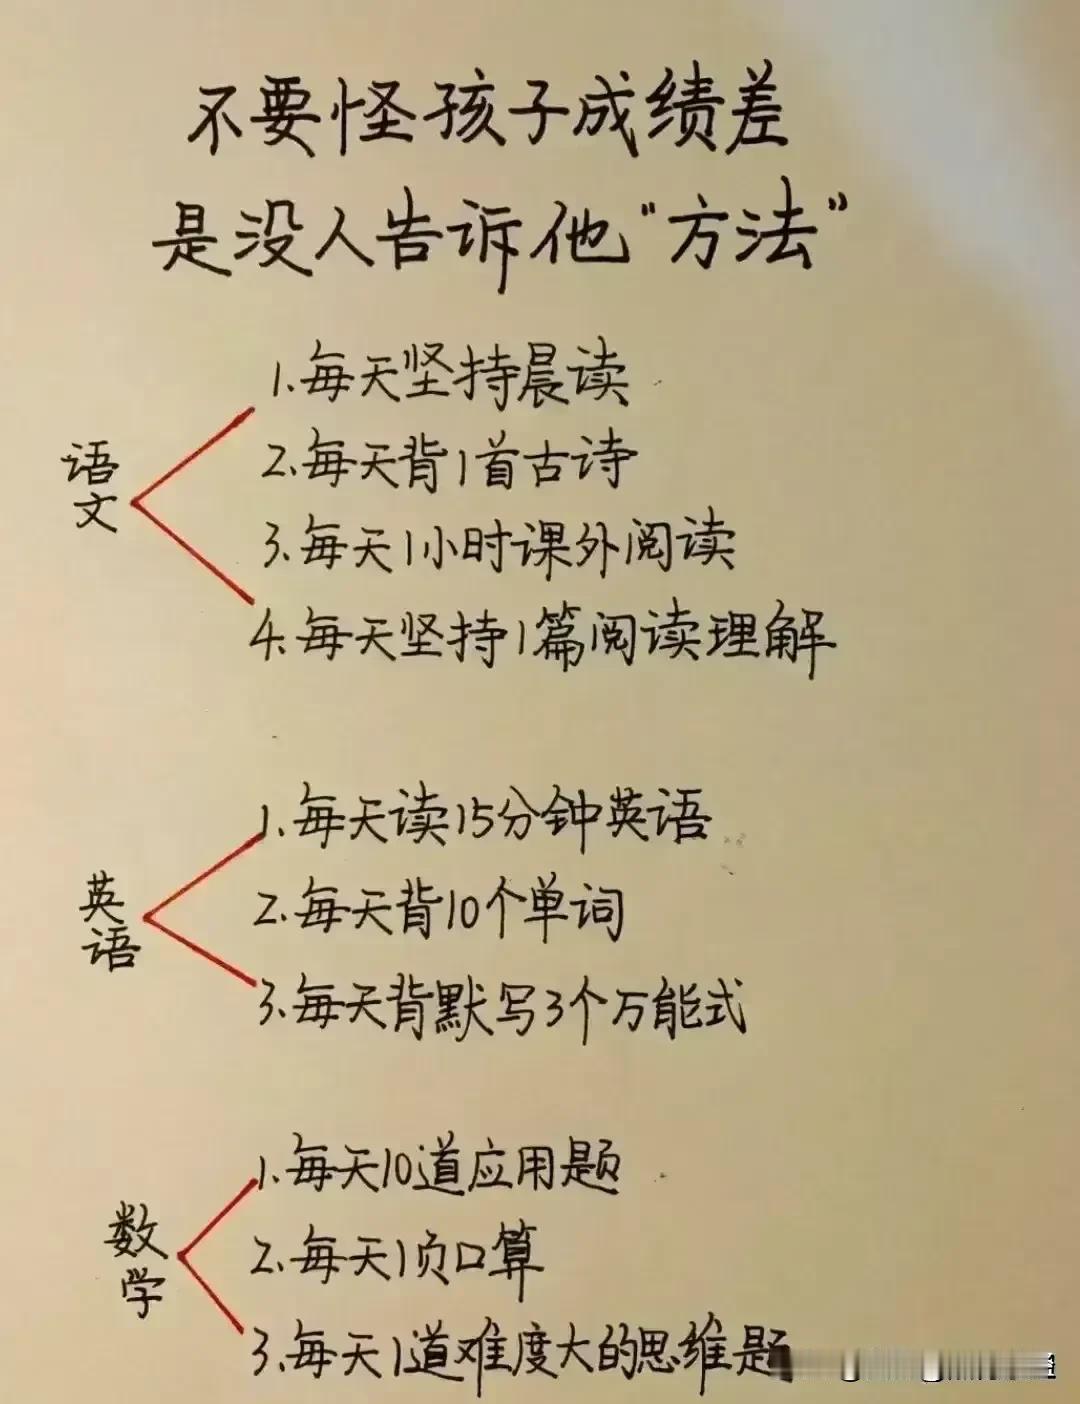 不要怪孩子成绩差
是没人告诉他“方法”
语文
1.每天坚持晨读
2.每天背1首古诗
3.每天1小时课外阅读
4.每天坚持1篇阅读理解
英语
1.每天读15分钟英语
2.每天背10个单词
3.每天背默写3个万能式
数学
1.每天10道应用题
2.每天1页口算
3.每天1道难度大的思维题